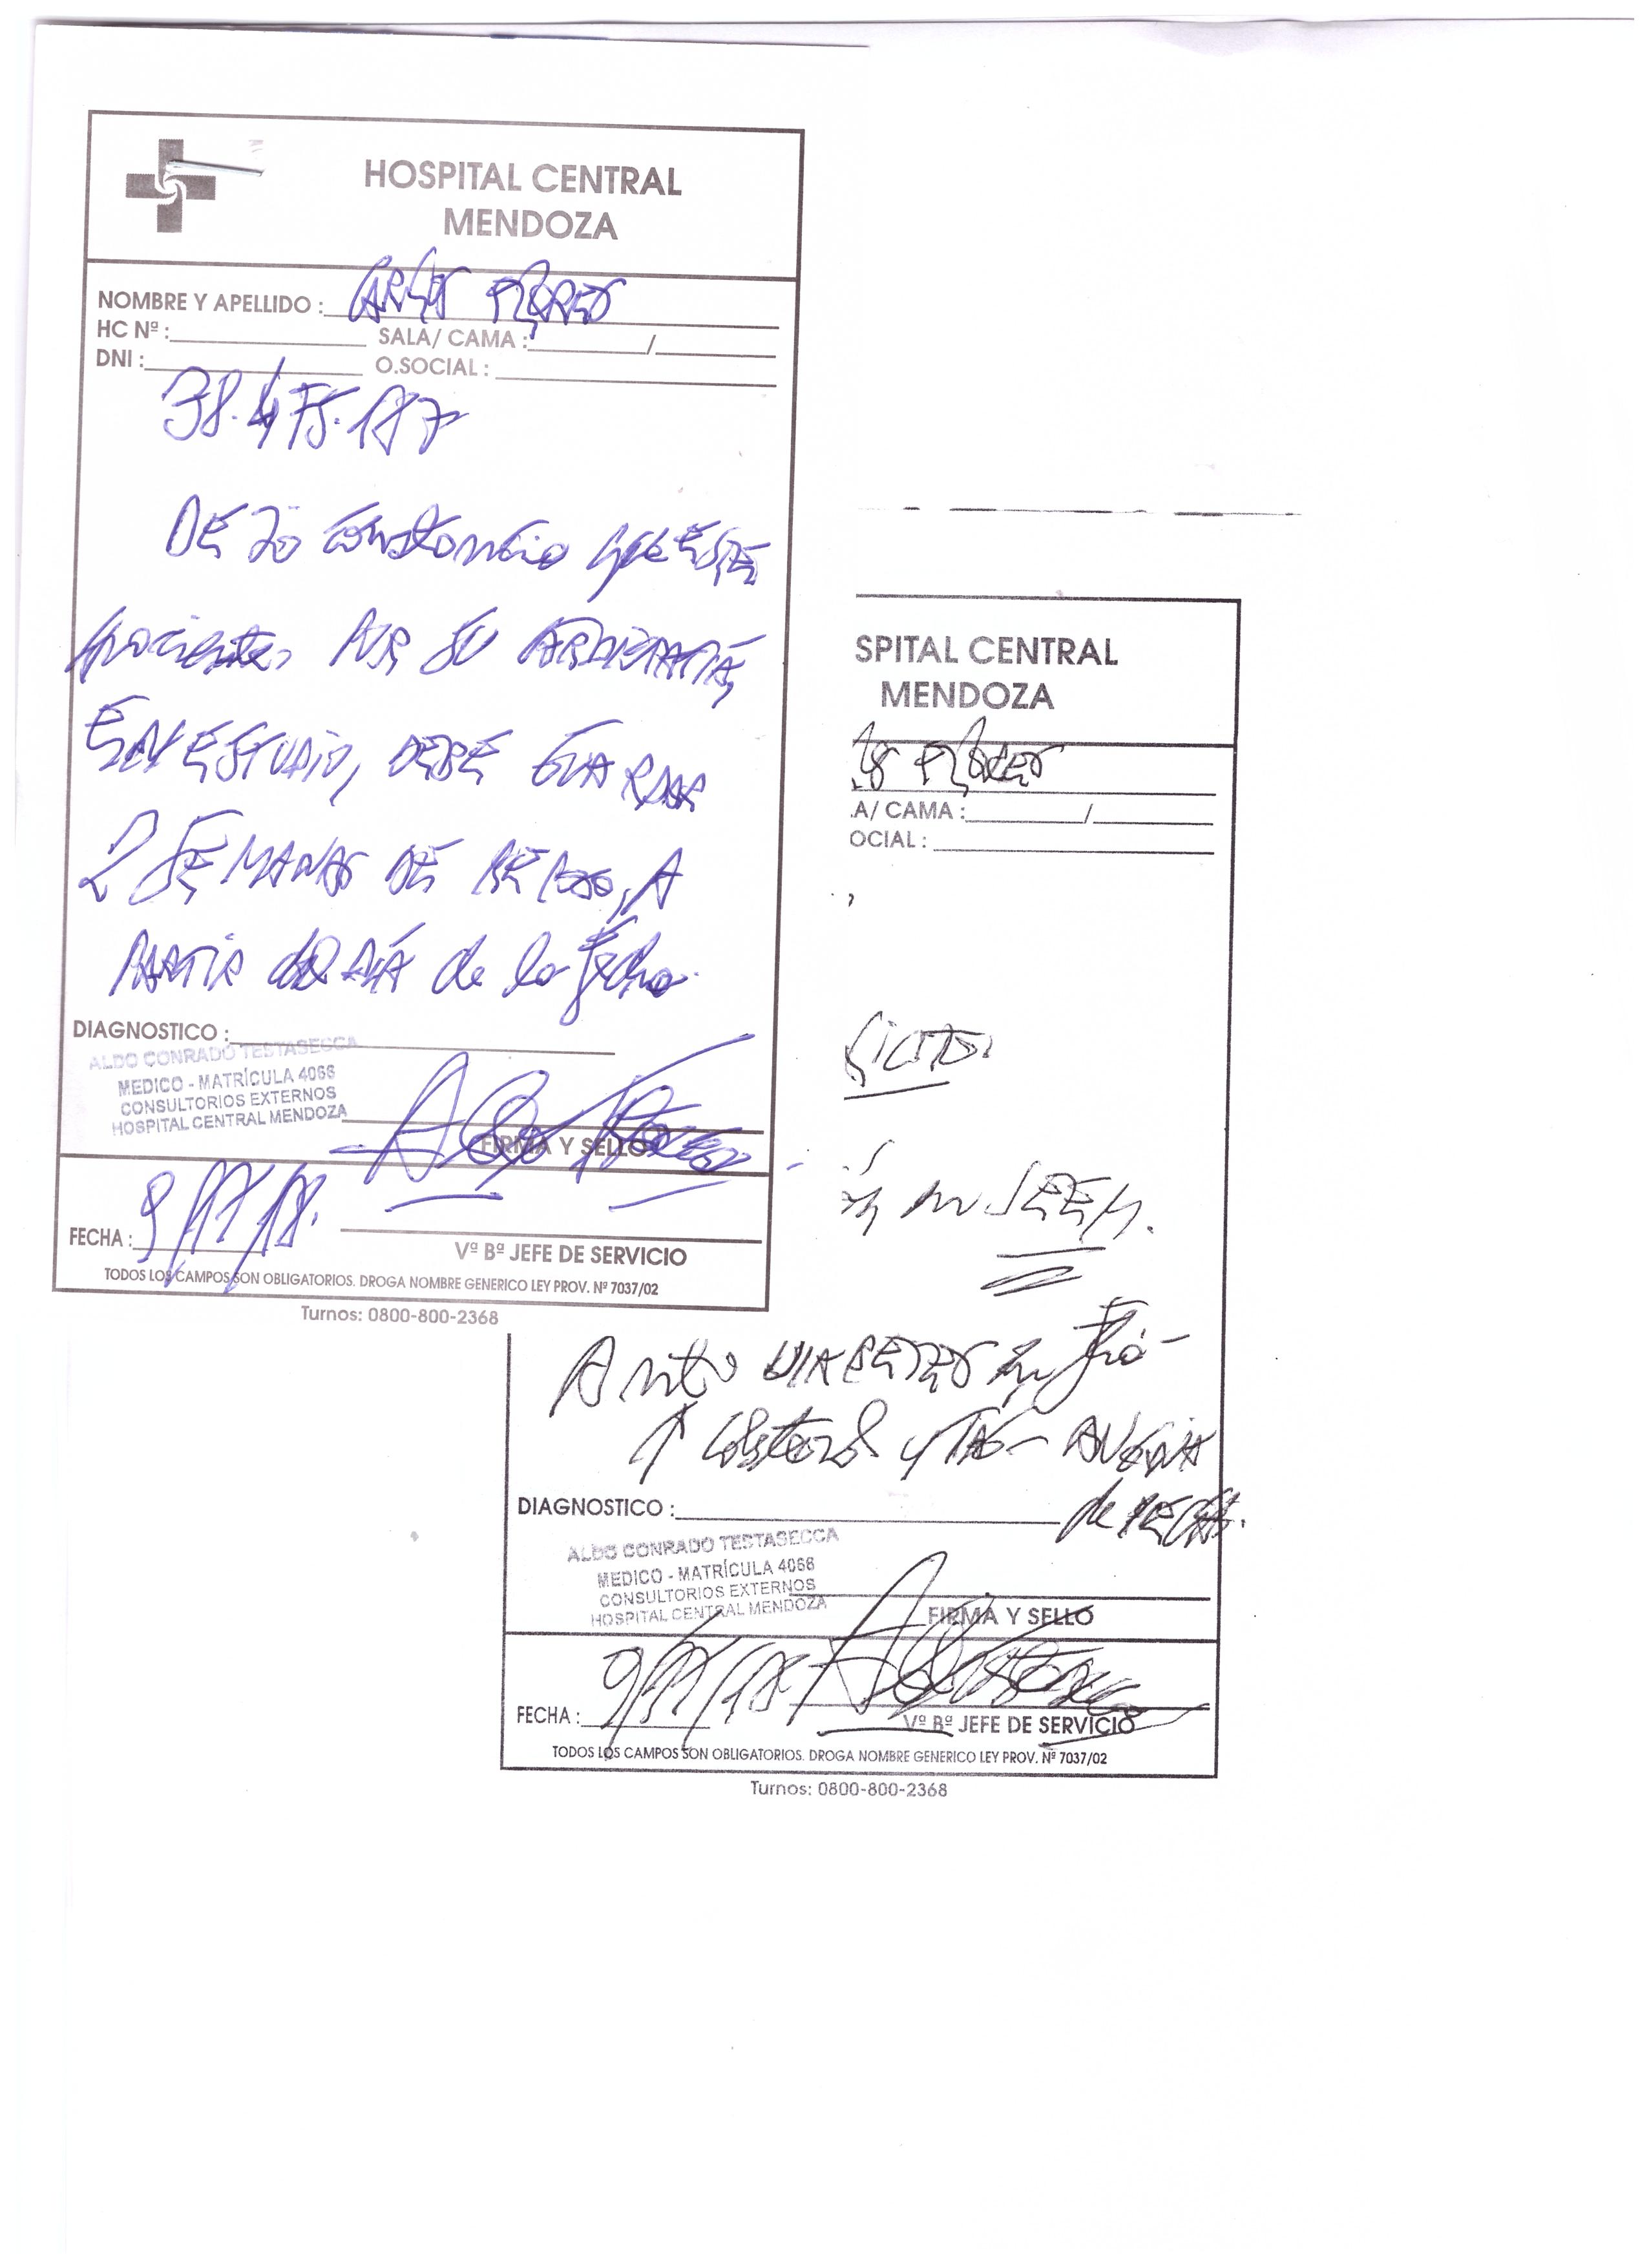 HOSPITAL CENTRAL
MENDOZA
NOMBRE Y APELLIDO : CARLOS FLORES
HC Nº : SALA/ CAMA : /
DNI : O.SOCIAL :
38.475.187
DEJO constancia que ESTE
paciente, POR SU
EN ESTUDIO, DEBE GUARDAR
2 SEMANAS DE REPOSO, A
PARTIR del DÍA de la fecha.
DIAGNOSTICO :
ALDO CONRADO TESTASECCA
MEDICO - MATRÍCULA 4066
CONSULTORIOS EXTERNOS
HOSPITAL CENTRAL MENDOZA
FIRMA Y SELLO
FECHA : 9/11/18.
Vº Bº JEFE DE SERVICIO
TODOS LOS CAMPOS SON OBLIGATORIOS. DROGA NOMBRE GENERICO LEY PROV. Nº 7037/02
Turnos: 0800-800-2368
SPITAL CENTRAL
MENDOZA
FLORES
A/ CAMA : /
OCIAL :
DIABETES
↑ colesterol y
de
DIAGNOSTICO :
ALDO CONRADO TESTASECCA
MEDICO - MATRÍCULA 4066
CONSULTORIOS EXTERNOS
HOSPITAL CENTRAL MENDOZA
FIRMA Y SELLO
FECHA : 9/11/18
Vº Bº JEFE DE SERVICIO
TODOS LOS CAMPOS SON OBLIGATORIOS. DROGA NOMBRE GENERICO LEY PROV. Nº 7037/02
Turnos: 0800-800-2368